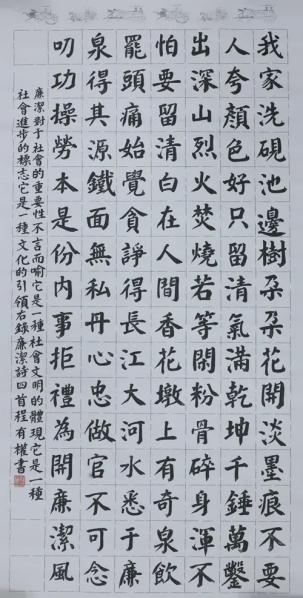 我家洗硯池邊樹朵朵花開淡墨痕不要
人夸顏色好只留清氣滿乾坤千錘萬鑿
出深山烈火焚燒若等閑粉骨碎身渾不
怕要留清白在人間香花墩上有奇泉飲
罷頭痛始覺貪諍得長江大河水悉于廉
泉得其源鐵面無私丹心忠做官不可念
叨功操勞本是份內事拒禮為開廉潔風
廉潔對于社會的重要性不言而喻它是一種社會文明的體現它是一種
社會進步的標志它是一種文化的引領右錄廉潔詩四首程有權書